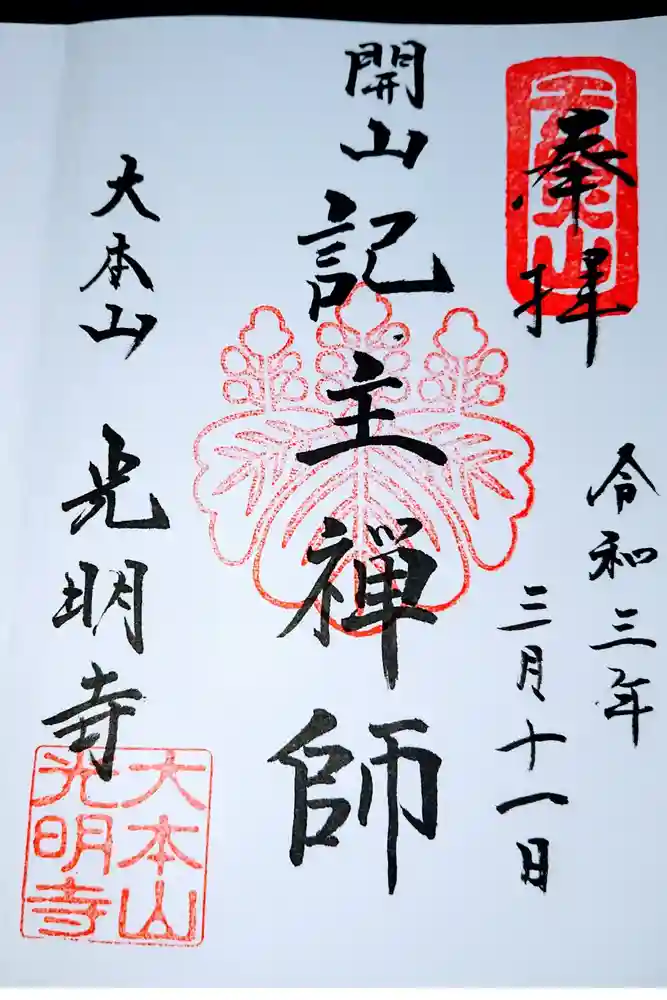 奉拝
令和三年
三月十一日
開山
記主禅師
大本山
光明寺
大本山
光明寺